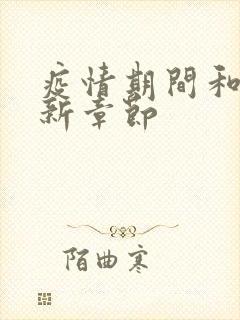 疫情期間和
新章節
陌曲寒